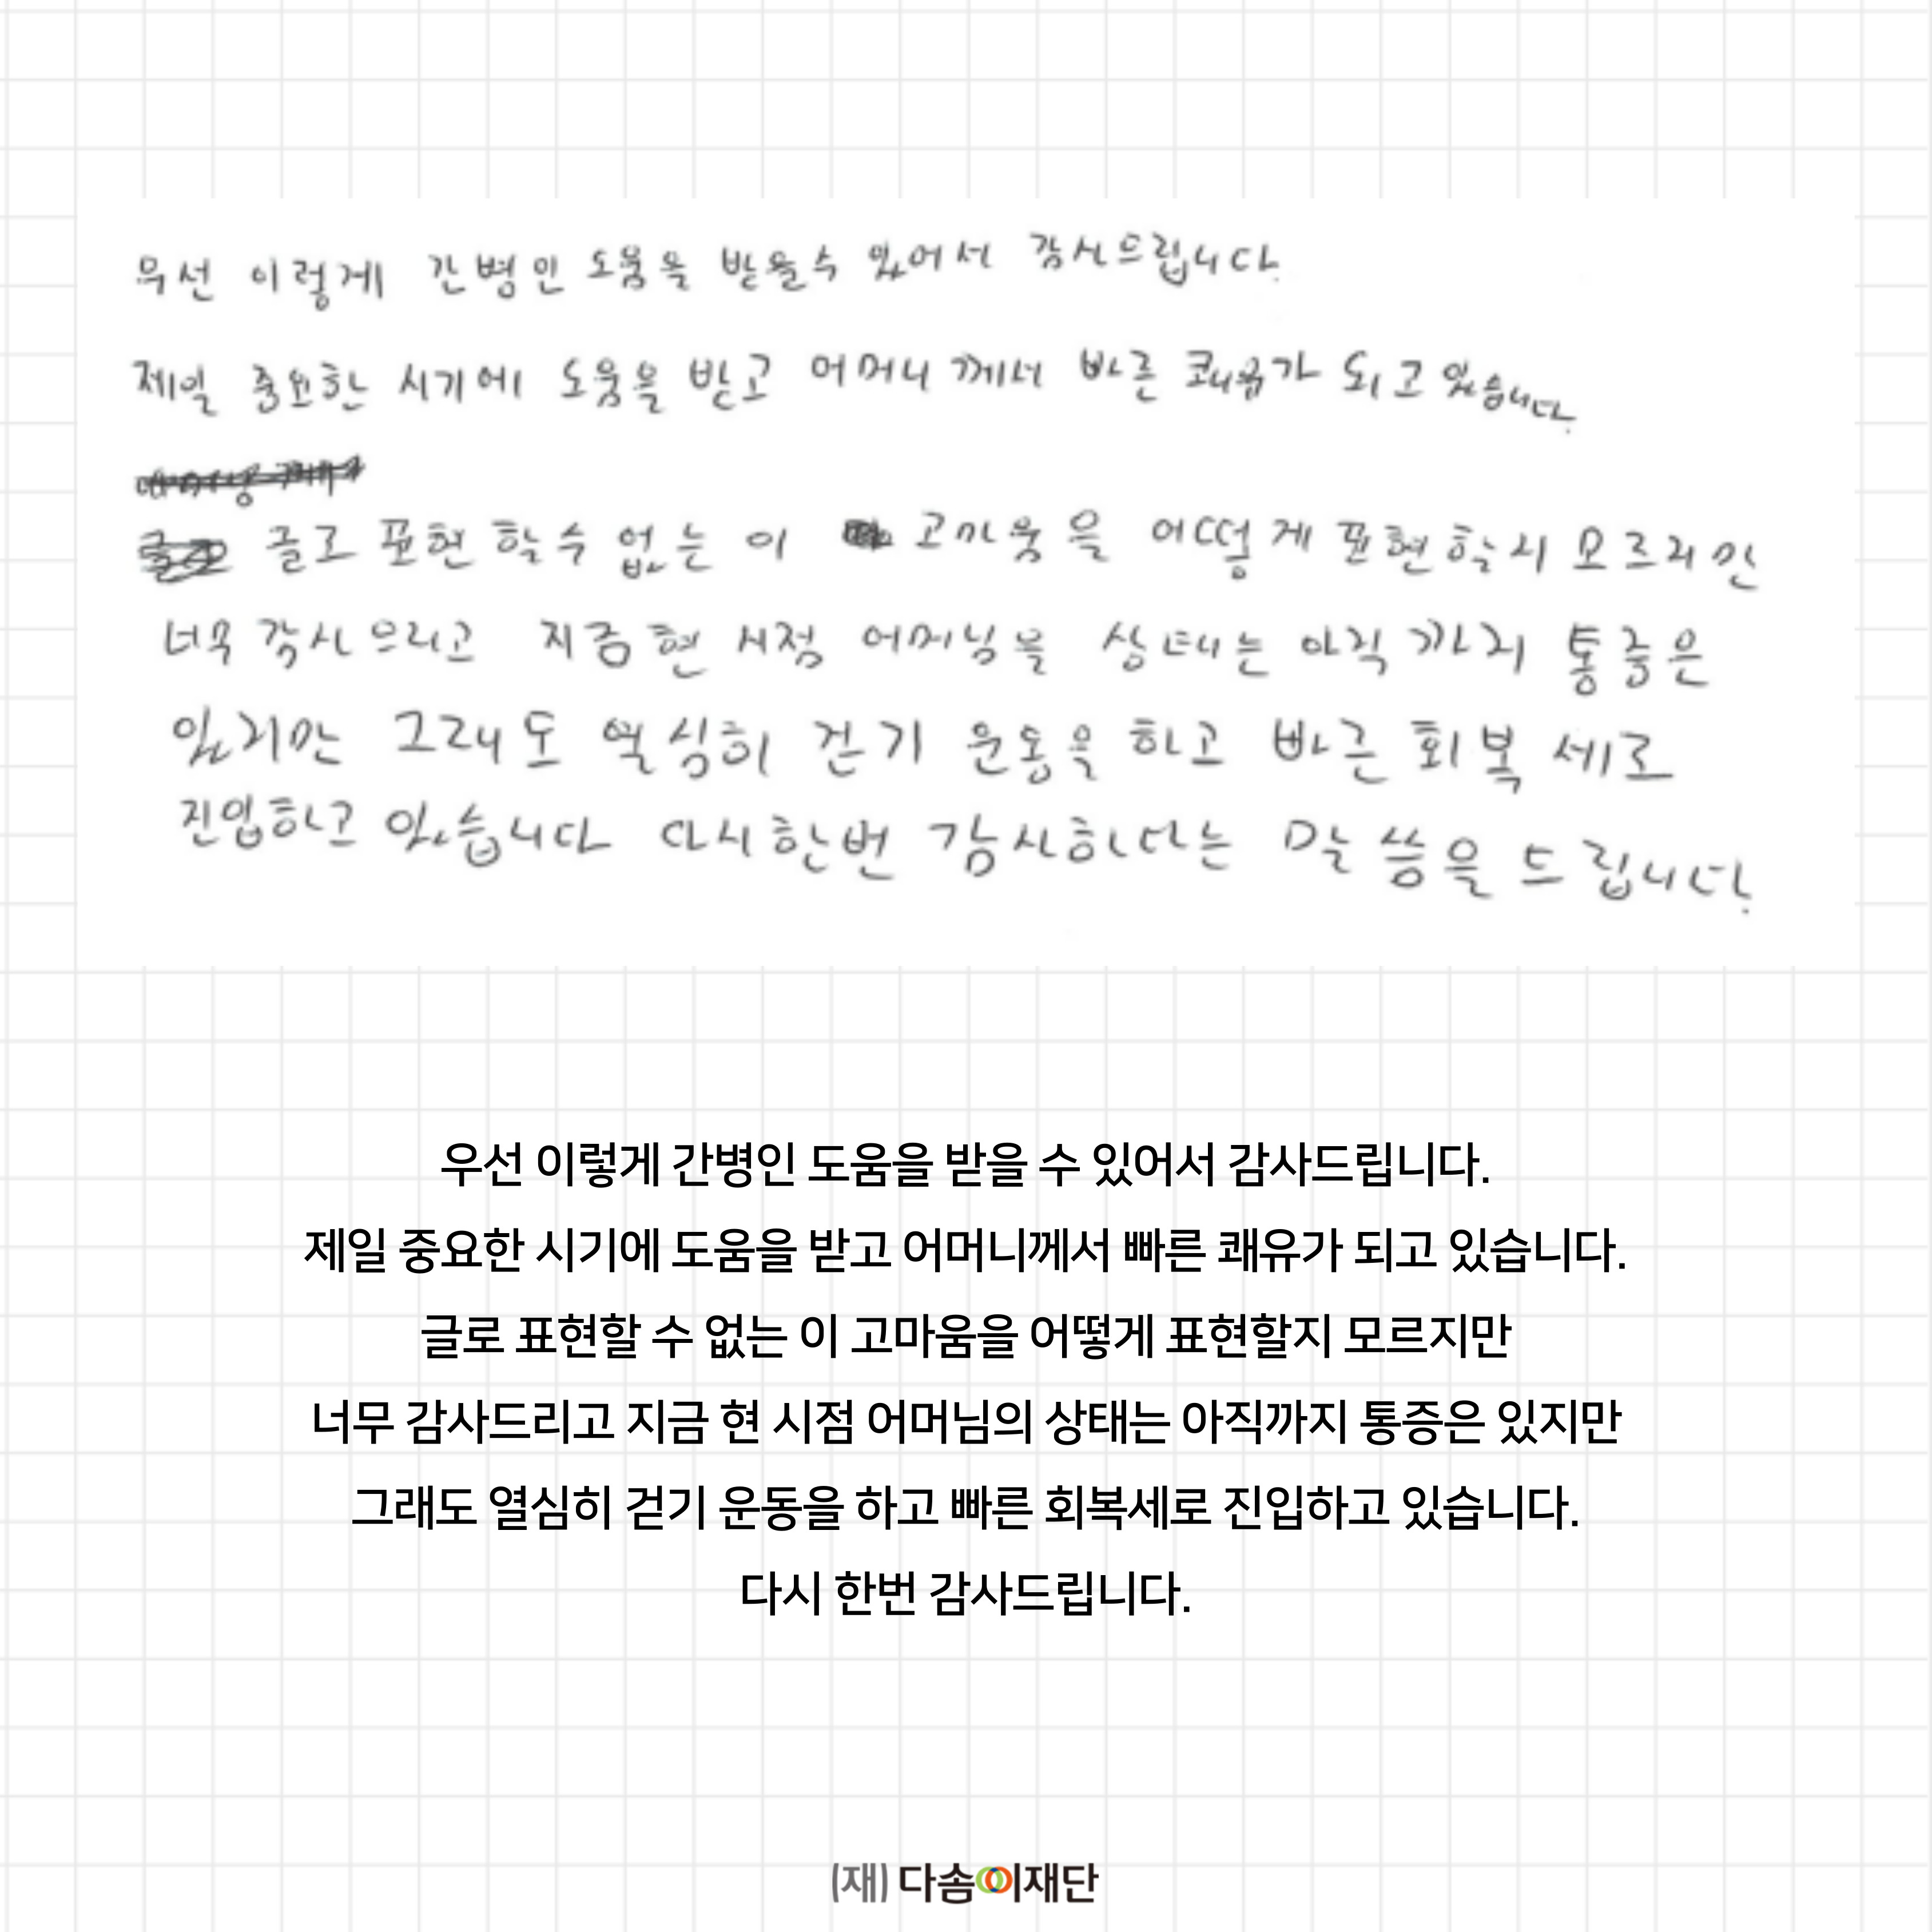 우선 이렇게 간병인 도움을 받을수 있어서 감사드립니다.
제일 중요한 시기에 도움을 받고 어머니께서 빠른 쾌유가 되고 있습니다.
글로 표현할수 없는 이 고마움을 어떻게 표현할지 모르지만
너무 감사드리고 지금 현 시점 어머님을 상태는 아직까지 통증은
있지만 그래도 열심히 걷기 운동을 하고 빠른 회복세로
진입하고 있습니다 다시한번 감사하다는 말씀을 드립니다.
우선 이렇게 간병인 도움을 받을 수 있어서 감사드립니다.
제일 중요한 시기에 도움을 받고 어머니께서 빠른 쾌유가 되고 있습니다.
글로 표현할 수 없는 이 고마움을 어떻게 표현할지 모르지만
너무 감사드리고 지금 현 시점 어머님의 상태는 아직까지 통증은 있지만
그래도 열심히 걷기 운동을 하고 빠른 회복세로 진입하고 있습니다.
다시 한번 감사드립니다.
(재) 다솜이재단